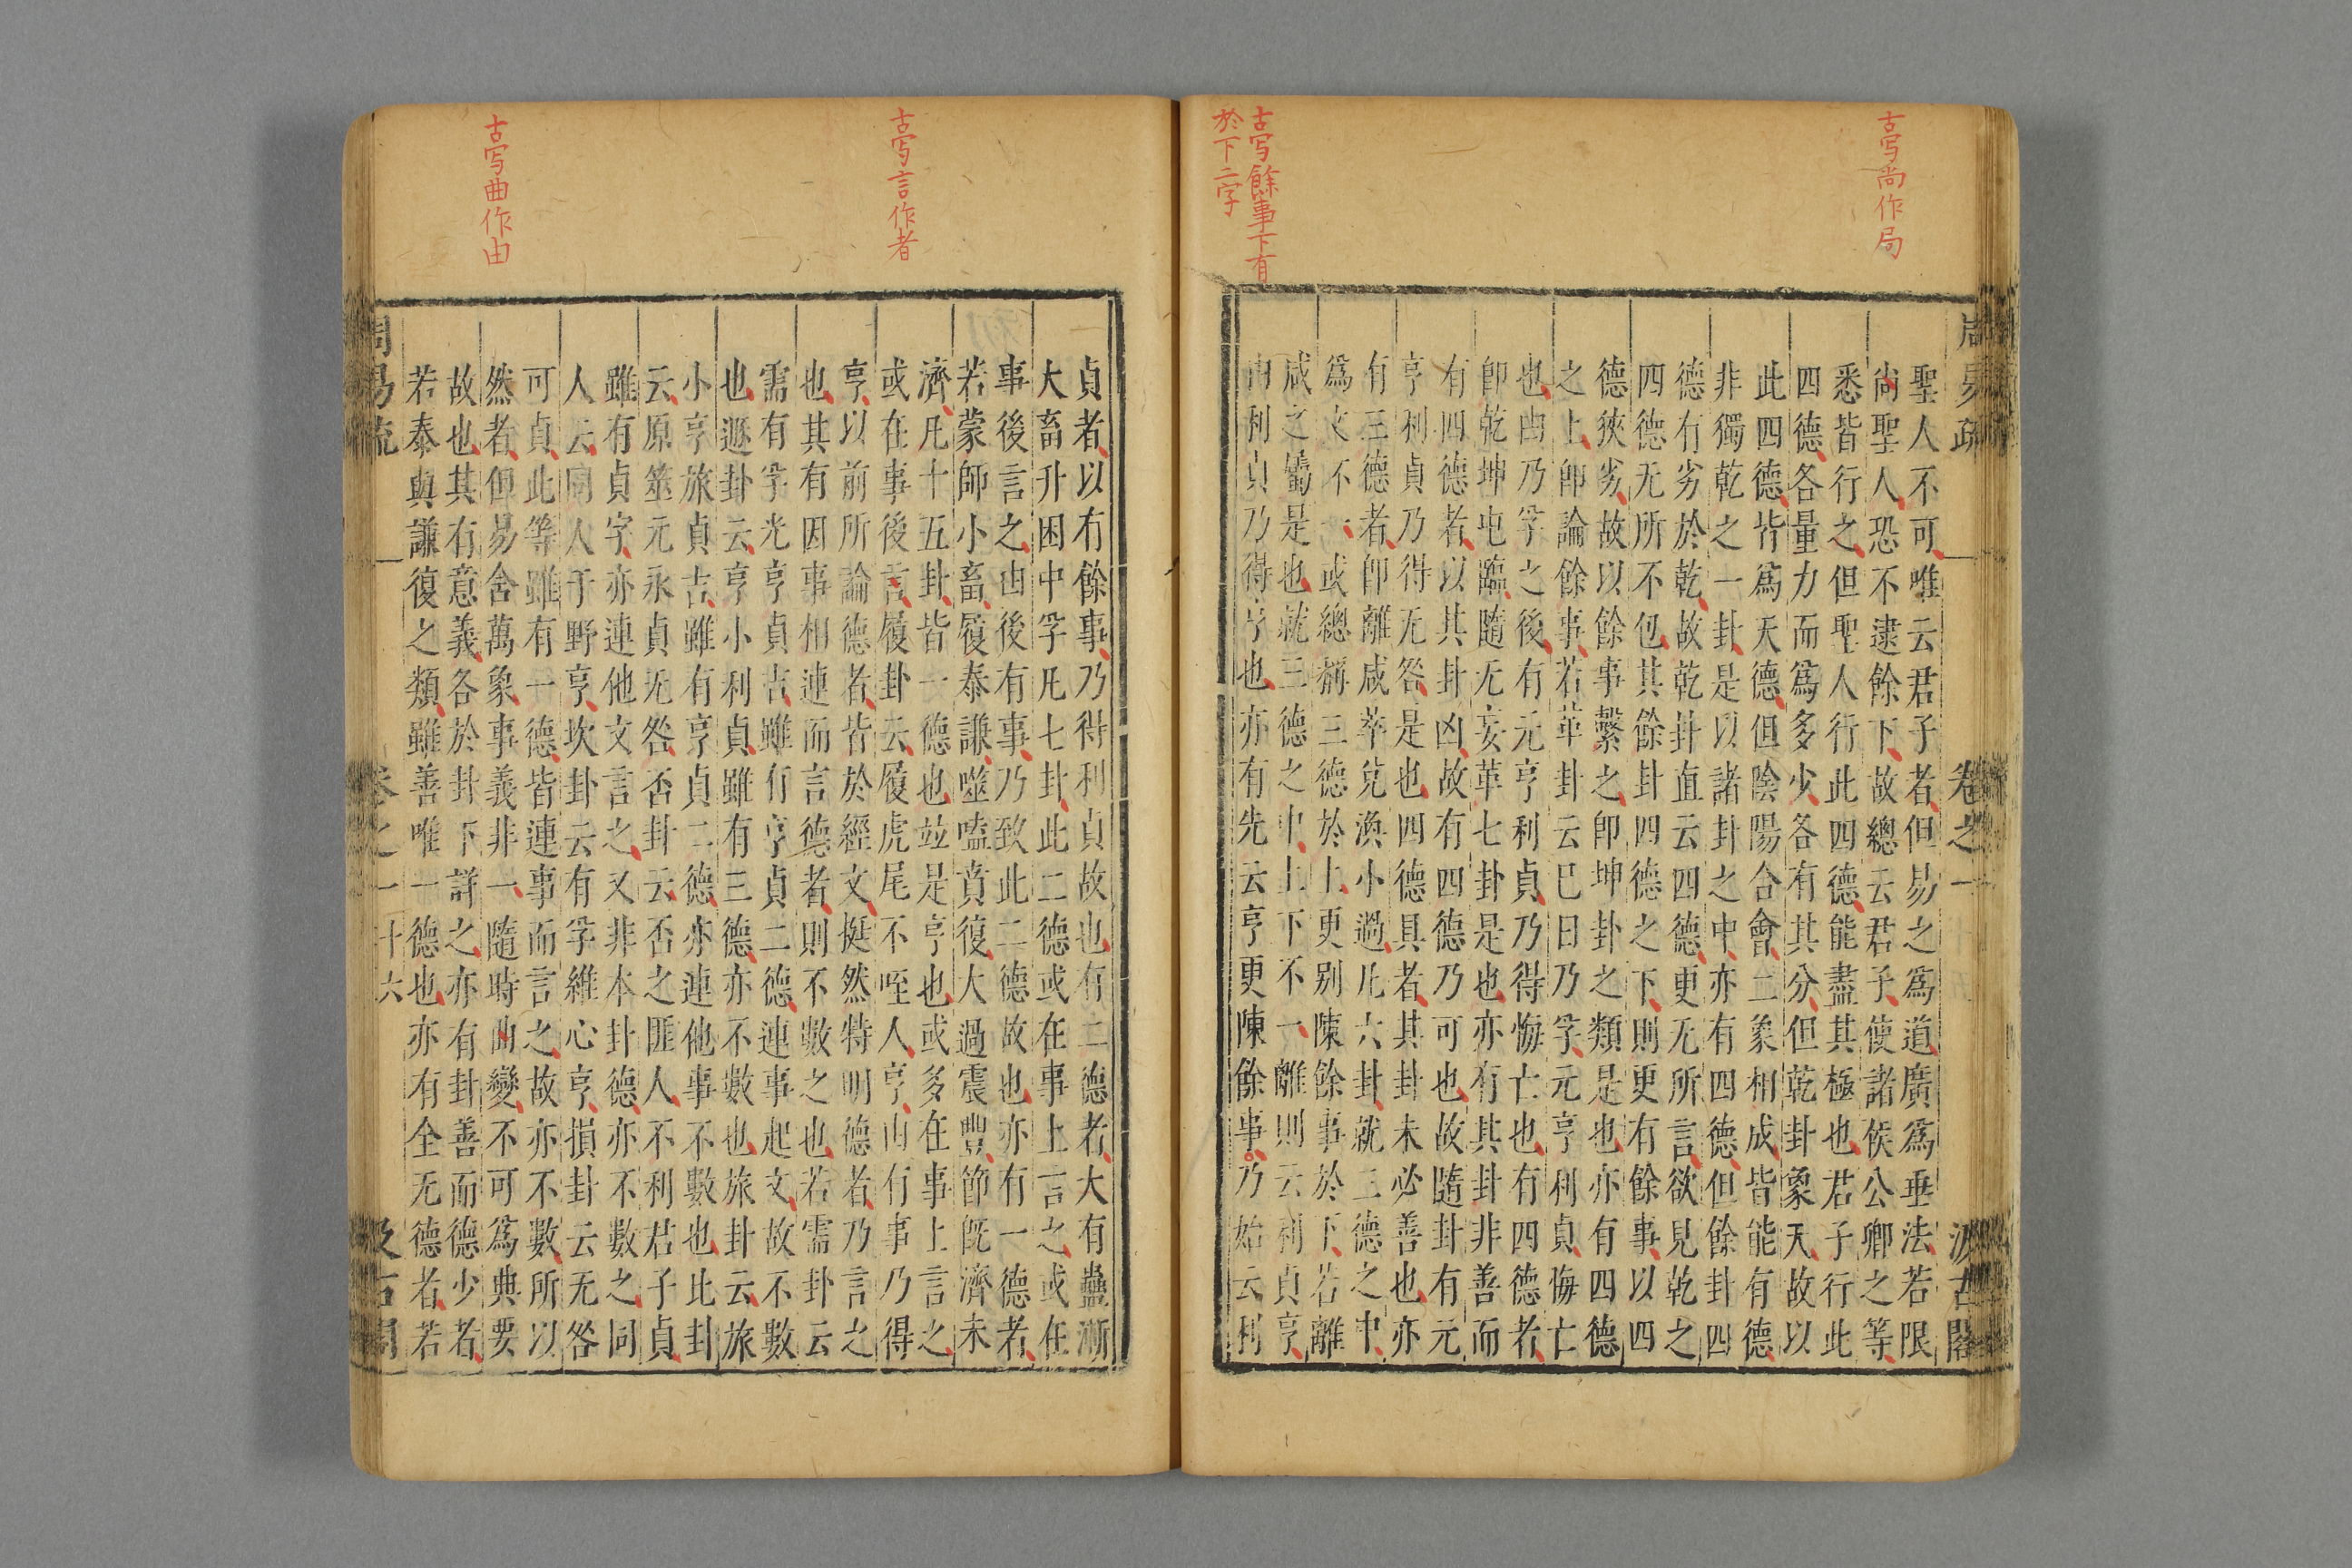 古寫尚作局
古寫餘事下有
於下二字
周易疏 卷之一 汲古閣
聖人不可唯云君子者但易之爲道廣爲垂法若限
尚聖人恐不逮餘下故總云君子使諸侯公卿之等
悉皆行之但聖人行此四德能盡其極也君子行此
四德各量力而爲多少各有其分但乾卦象天故以
此四德皆爲天德但陰陽合會二象相成皆能有德
非獨乾之一卦是以諸卦之中亦有四德但餘卦四
德有劣於乾故乾卦直云四德更无所言欲見乾之
四德无所不包其餘卦四德之下則更有餘事以四
德狹劣故以餘事繫之卽坤卦之類是也亦有四德
之上卽論餘事若革卦云巳日乃孚元亨利貞悔亡
也由乃孚之後有元亨利貞乃得悔亡也有四德者
卽乾坤屯臨隨无妄革七卦是也亦有其卦非善而
有四德者以其卦凶故有四德乃可也故隨卦有元
亨利貞乃得无咎是也四德具者其卦未必善也亦
有三德者卽離咸萃兌渙小過凡六卦就三德之中
爲文不一或總稱三德於上更别陳餘事於下若離
咸之屬是也就三德之中上下不一離則云利貞亨
由利貞乃得亨也亦有先云亨更陳餘事乃始云利
古寫言作者
古寫曲作由
貞者以有餘事乃得利貞故也有二德者大有蠱漸
大畜升困中孚凡七卦此二德或在事上言之或在
事後言之由後有事乃致此二德故也亦有一德者
若蒙師小畜履泰謙噬嗑賁復大過震豐節旣濟未
濟凡十五卦皆一德也竝是亨也或多在事上言之
或在事後言履卦云履虎尾不咥人亨由有事乃得
亨以前所論德者皆於經文挺然特明德者乃言之
也其有因事相連而言德者則不數之也若需卦云
需有孚光亨貞吉雖有亨貞二德連事起文故不數
也遯卦云亨小利貞雖有三德亦不數也旅卦云旅
小亨旅貞吉雖有亨貞二德亦連他事不數也比卦
云原筮元永貞无咎否卦云否之匪人不利君子貞
雖有貞字亦連他文言之又非本卦德亦不數之同
人云同人于野亨坎卦云有孚維心亨損卦云无咎
可貞此等雖有一德皆連事而言之故亦不數所以
然者但易含萬象事義非一隨時曲變不可爲典要
故也其有意義各於卦下詳之亦有卦善而德少者
若泰與謙復之類雖善唯一德也亦有全无德者若
周易疏 卷之一 十六 汲古閣